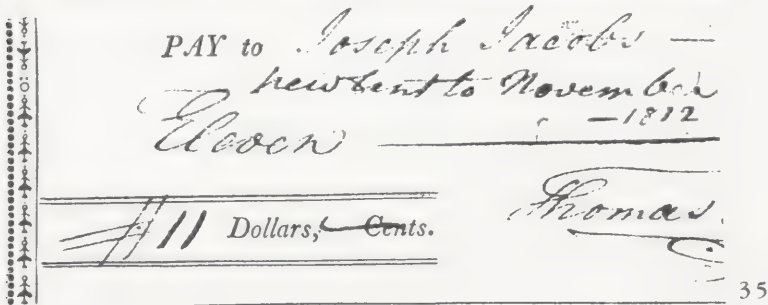 PAY to Joseph Jacobs —
pew rent to November
— 1812
Eleven
11 Dollars, Cents.
Thomas
35